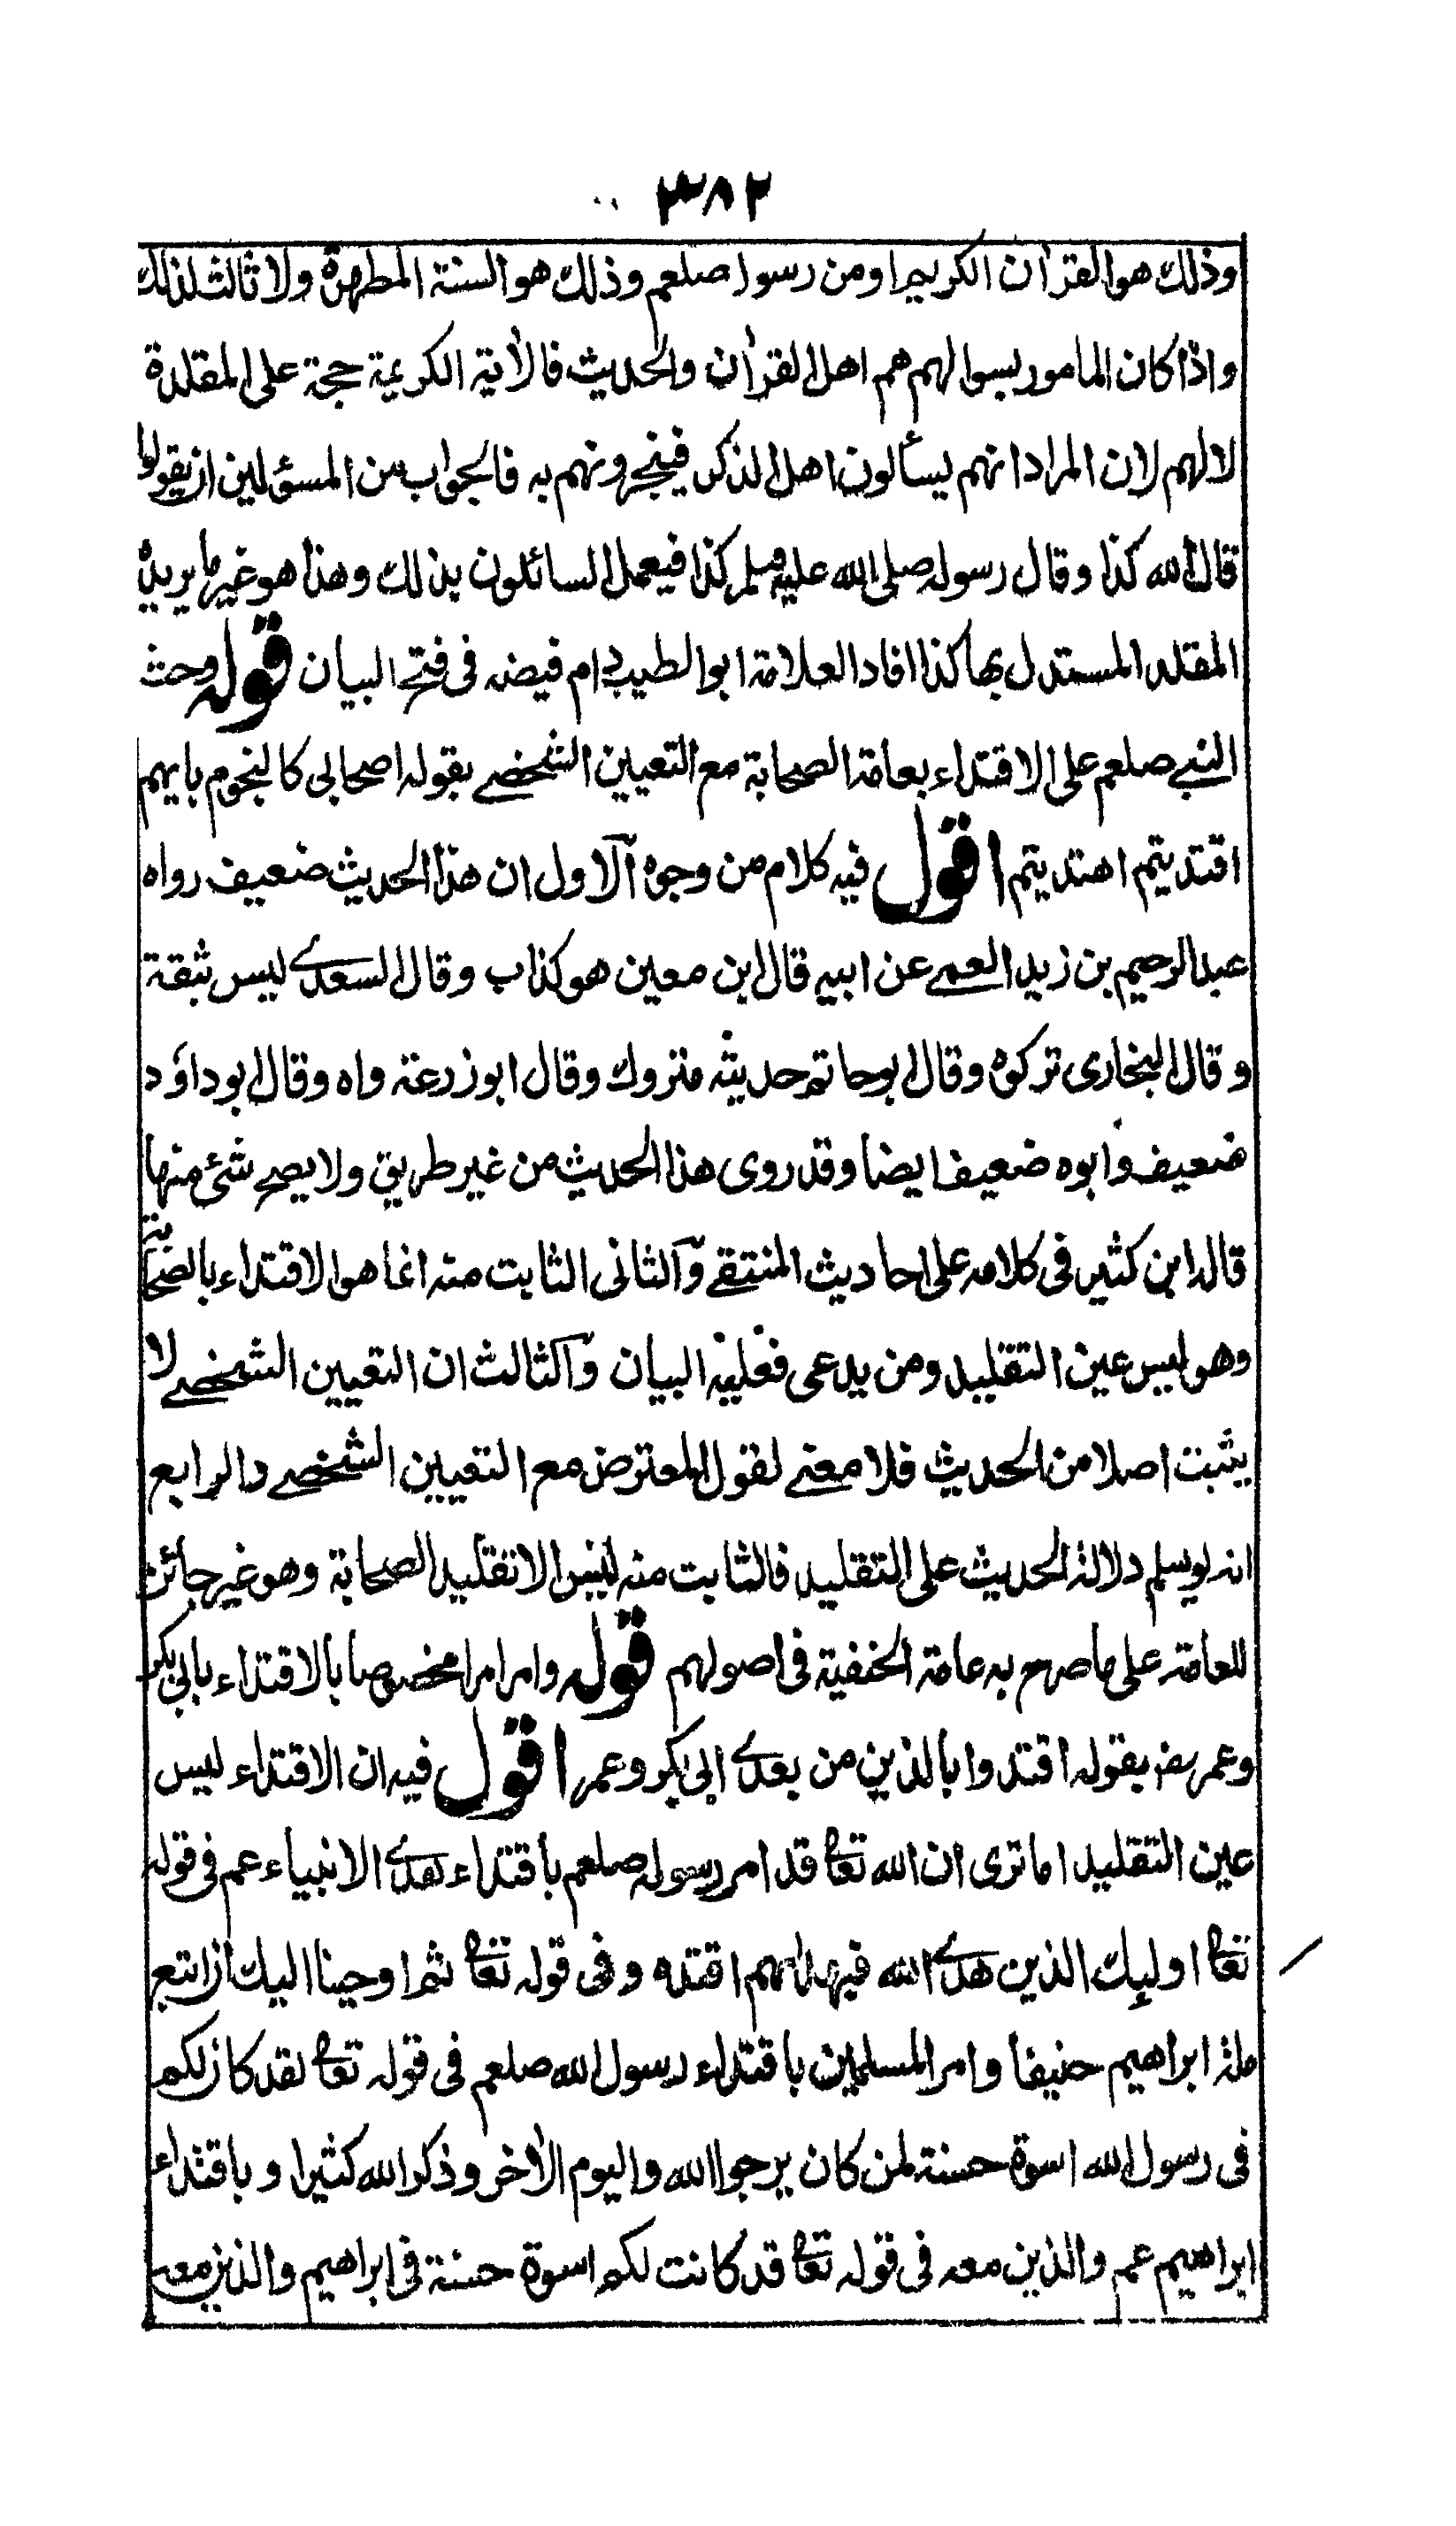 ٣٨٢
وذلك هو القرآن الكريم او من رسوله صلعم وذلك هو السنة المطهرة ولا ثالث لذلك
واذا كان المامور بسوالهم هم اهل القرآن والحديث فالآية الكريمة حجة على المقلدة
لا لهم لان المراد انهم يسألون اهل الذكر فيخبرونهم به فالجواب من المسؤلين ان يقولوا
قال الله كذا وقال رسوله صلى الله عليه وسلم كذا فيعمل السائلون بذلك وهذا هو غير ما يريده
المقلد المستدل بها كذا افاد العلامة ابو الطيب دام فيضه فى فتح البيان قوله وحث
النبي صلعم على الاقتداء بعامة الصحابة مع التعيين الشخصي بقوله اصحابى كالنجوم بايهم
اقتديتم اهتديتم اقول فيه كلام من وجوه الاول ان هذا الحديث ضعيف رواه
عبد الرحيم بن زيد العمي عن ابيه قال ابن معين هو كذاب وقال السعدي ليس بثقة
وقال البخارى تركوه وقال ابو حاتم حديثه متروك وقال ابو زرعة واه وقال ابو داؤد
ضعيف وابوه ضعيف ايضا وقد روى هذا الحديث من غير طريق ولا يصح شئ منها
قاله ابن كثير فى كلامه على احاديث المنتقي والثانى الثابت منه انما هو الاقتداء بالصحابة
وهو ليس عين التقليد ومن يدعى فعليه البيان والثالث ان التعيين الشخصي لا
يثبت اصلا من الحديث فلا معني لقول المعترض مع التعيين الشخصي والرابع
انه لو يسلم دلالة الحديث على التقليد فالثابت منه ليس الا تقليد الصحابة وهو غير جائز
للعامة على ما صرح به عامة الحنفية فى اصولهم قوله وامر امرا مخصوصا بالاقتداء بابى بكر
وعمر رض بقوله اقتدوا بالذين من بعدي ابى بكر وعمر اقول فيه ان الاقتداء ليس
عين التقليد اما ترى ان الله تعالى قد امر رسوله صلعم باقتداء هدي الانبياء عم فى قوله
تعالى اولئك الذين هدي الله فبهداهم اقتده وفى قوله تعالى ثم اوحينا اليك ان اتبع
ملة ابراهيم حنيفا وامر المسلمين باقتداء رسول الله صلعم فى قوله تعالى لقد كان لكم
فى رسول الله اسوة حسنة لمن كان يرجوا الله واليوم الآخر وذكر الله كثيرا وباقتداء
ابراهيم عم والذين معه فى قوله تعالى قد كانت لكم اسوة حسنة فى ابراهيم والذين معه